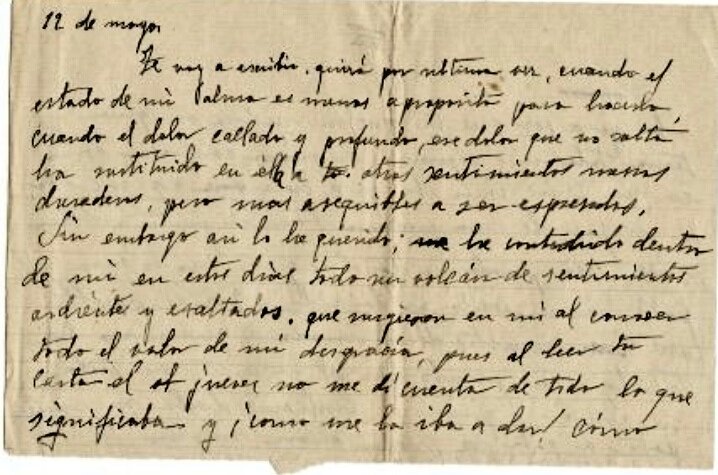 12 de mayo,
Te voy a escribir, quizá por última vez, cuando el
estado de mi alma es menos a propósito para hacerlo,
cuando el dolor callado y profundo, ese dolor que no salta
ha sustituido en ella a otros sentimientos menos
duraderos, pero mas asequibles a ser expresados.
Sin embargo asi lo he querido; he contenido dentro
de mi en estos dias todo un volcán de sentimientos
ardientes y exaltados, que surgieron en mi al conocer
todo el valor de mi desgracia, pues al leer tu
carta el jueves no me di cuenta de todo lo que
significaba y ¡como me la iba a dar! cómo